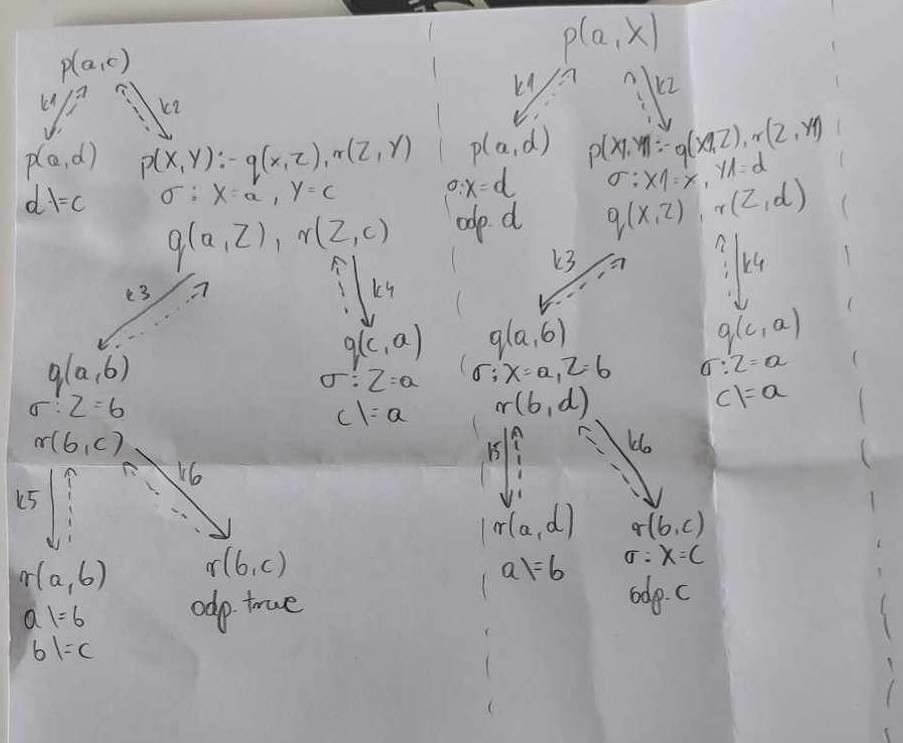 p(a,c)
k1
k2
p(a,d)
d\=c
p(X,Y):-q(x,Z),r(Z,Y)
σ: X=a, Y=c
q(a,Z), r(Z,c)
k3
k4
q(a,b)
σ: Z=b
r(b,c)
q(c,a)
σ: Z=a
c\=a
k5
k6
r(a,b)
a\=b
b\=c
r(b,c)
odp. true
p(a,X)
k1
k2
p(a,d)
σ: x=d
odp. d
p(X1,Y1):-q(X1,Z),r(Z,Y1)
σ: X1=x, Y1=d
q(X,Z), r(Z,d)
k3
k4
q(a,b)
σ: X=a, Z=b
r(b,d)
q(c,a)
σ: Z=a
c\=a
k5
k6
r(a,d)
a\=b
r(b,c)
σ: X=c
odp. c